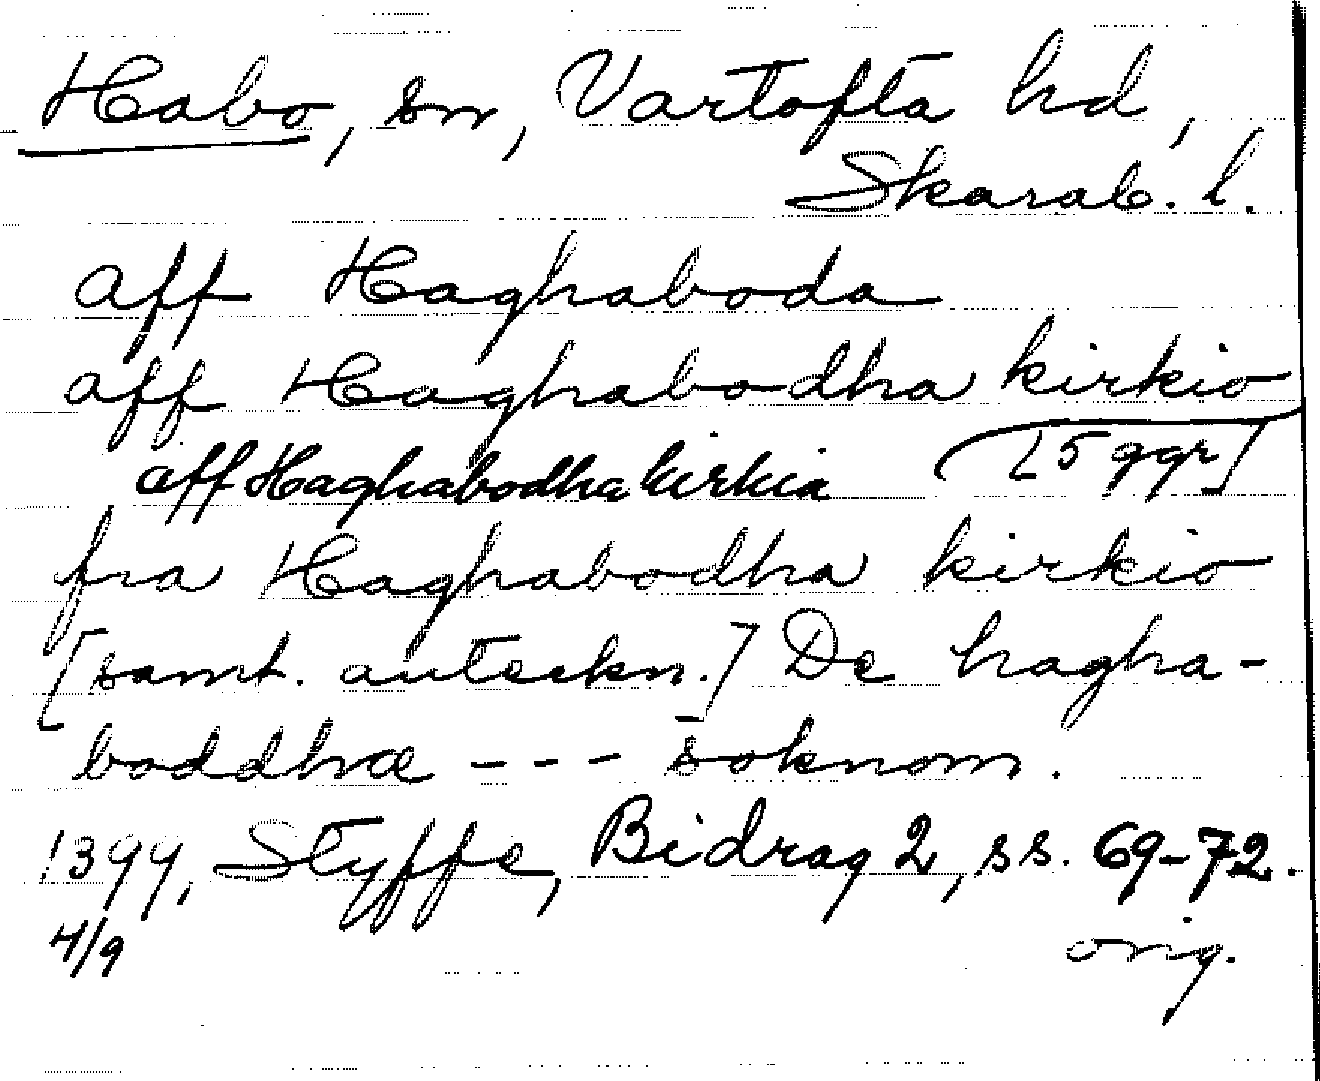 Habo, sn, Vartofta hd,
Skarab. l.
aff Haghaboda
aff Haghabodha kirkio
[5 ggr]
aff Haghabodha kirkia
fra Haghabodha kirkio
[samt. anteckn.] De hagha-
boddhæ --- soknom.
1399, Styffe, Bidrag 2, ss. 69-72.
4/9
orig.